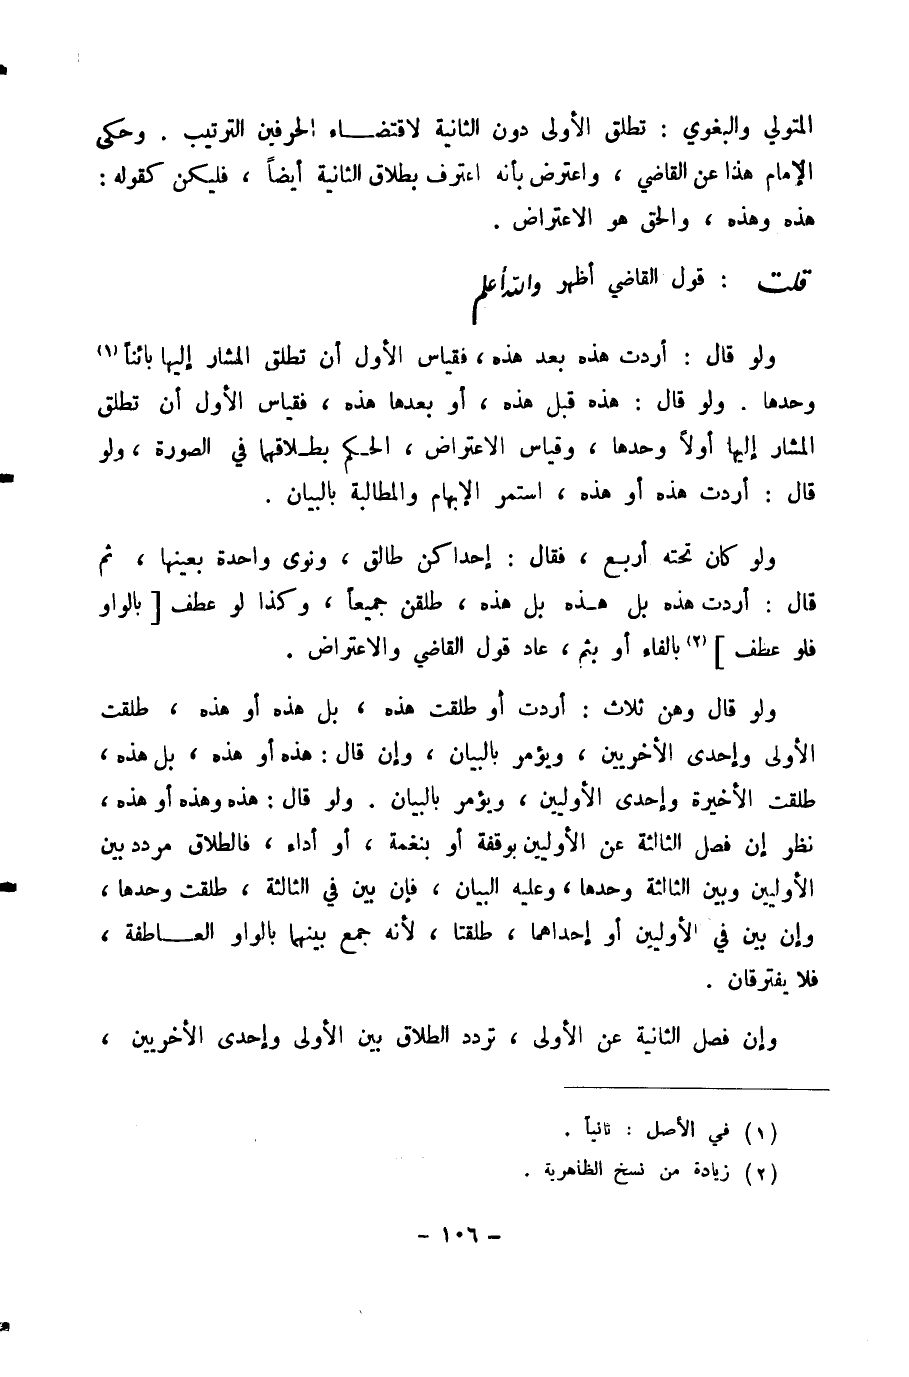 المتولي والبغوي : تطلق الأولى دون الثانية لاقتضـــاء الحرفين الترتيب . وحكى
الإمام هذا عن القاضي ، واعترض بأنه اعترف بطلاق الثانية أيضاً ، فليكن كقوله :
هذه وهذه ، والحق هو الاعتراض .
قلت : قول القاضي أظهر والله أعلم
ولو قال : أردت هذه بعد هذه ، فقياس الأول أن تطلق المشار إليها بائناً (١)
وحدها . ولو قال : هذه قبل هذه ، أو بعدها هذه ، فقياس الأول أن تطلق
المشار إليها أولاً وحدها ، وقياس الاعتراض ، الحكم بطلاقها في الصورة ، ولو
قال : أردت هذه أو هذه ، استمر الإبهام والمطالبة بالبيان .
ولو كان تحته أربع ، فقال : إحداكن طالق ، ونوى واحدة بعينها ، ثم
قال : أردت هذه بل هـذه بل هذه ، طلقن جميعاً ، وكذا لو عطف [ بالواو
فلو عطف ] (٢) بالفاء أو بثم ، عاد قول القاضي والاعتراض .
ولو قال وهن ثلاث : أردت أو طلقت هذه ، بل هذه أو هذه ، طلقت
الأولى وإحدى الأخريين ، ويؤمر بالبيان ، وإن قال : هذه أو هذه ، بل هذه ،
طلقت الأخيرة وإحدى الأوليين ، ويؤمر بالبيان . ولو قال : هذه وهذه أو هذه ،
نظر إن فصل الثالثة عن الأوليين بوقفة أو بنغمة ، أو أداء ، فالطلاق مردد بين
الأوليين وبين الثالثة وحدها ، وعليه البيان ، فإن بين في الثالثة ، طلقت وحدها ،
وإن بين في الأوليين أو إحداهما ، طلقتا ، لأنه جمع بينها بالواو العـــاطفة ،
فلا يفترقان .
وإن فصل الثانية عن الأولى ، تردد الطلاق بين الأولى وإحدى الأخريين ،
(١) في الأصل : ثانياً .
(٢) زيادة من نسخ الظاهرية .
– ١٠٦ –